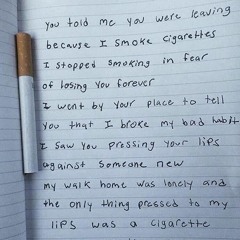 you told me you were leaving
because I smoke cigarettes
I stopped smoking in fear
of losing you forever
I went by your place to tell
you that I broke my bad habit
I saw you pressing your lips
against someone new
my walk home was lonely and
the only thing pressed to my
lips was a cigarette